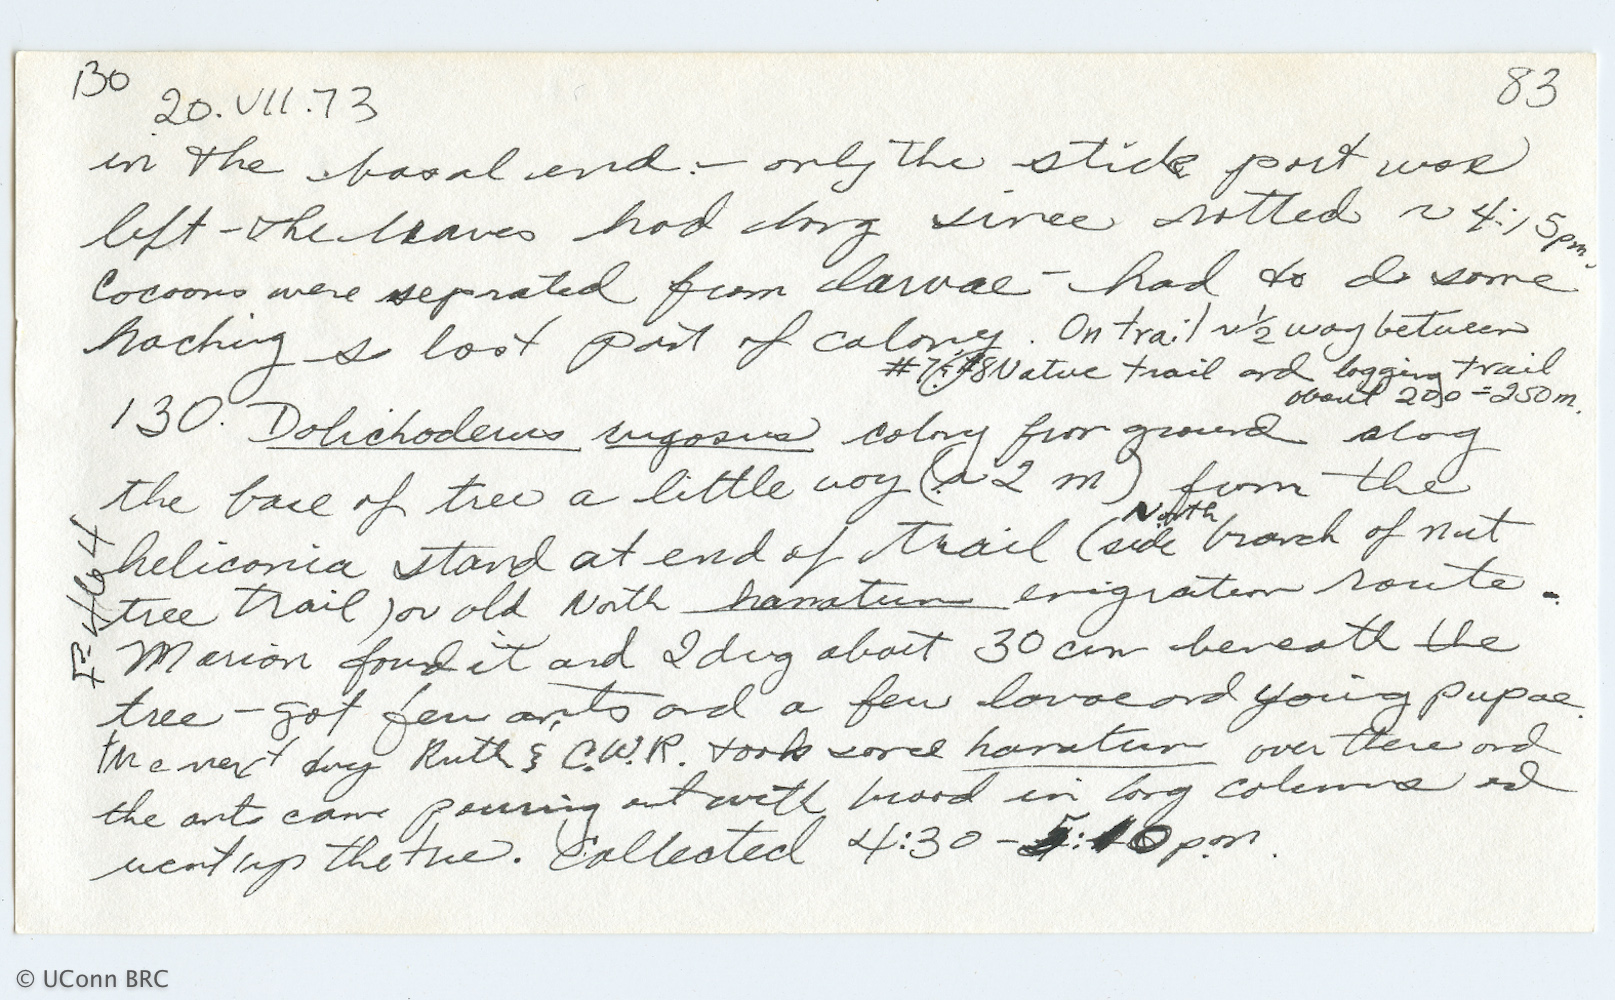 130
83
20.VII.73
in the basal end. – only the stick part was
left – the leaves had long since rotted ~ 4:15pm.
Cocoons were seprated from larvae – had to do some
haching & lost part of colony. On trail ~½ way between
Nature trail and logging trail
about 200 = 250 m.
130. Dolichoderus rugosus colony from ground along
the base of tree a little way (~ 2 m) from the
heliconia stand at end of trail (North side branch of nut
tree trail) or old North hamatum emigration route.
F-464
Marion found it and I dug about 30 cm beneath the
tree – got few ants and a few larvae and young pupae.
the next day Ruth & C.W.R. took some hamatum over there and
the ants came pouring out with brood in long columns and
went up the tree. Collected 4:30 – 5:10 pm.
© UConn BRC